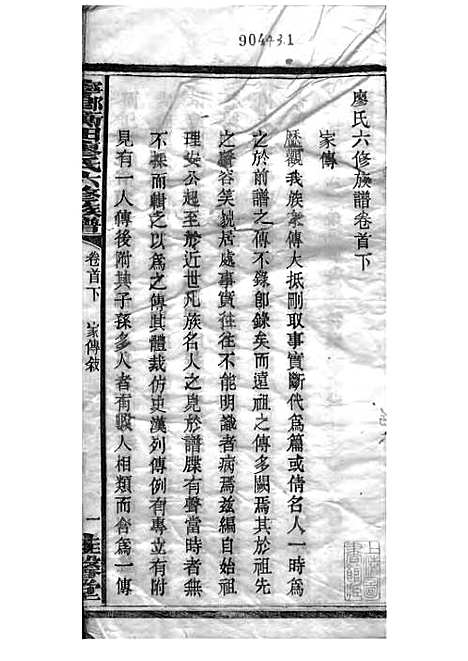 90443.1
廖氏六修族譜卷首下
家傳
歷觀我族家傳大抵剛取事實斷代為篇或倩名人一時為
之於前譜之傳不錄卽錄矣而遠祖之傳多闕焉其於祖先
之聲容笑貌居處事實往往不能明識者病焉玆編自始祖
理安公起至於近世凡族名人之見於譜牒有聲當時者無
不採而輯之以為之傳其體裁仿史漢列傳例有專立有附
見有一人傳後附其子孫多人者有數人相類而合為一傳
田廖氏六修族譜
卷首下
家傳敘
一
堂